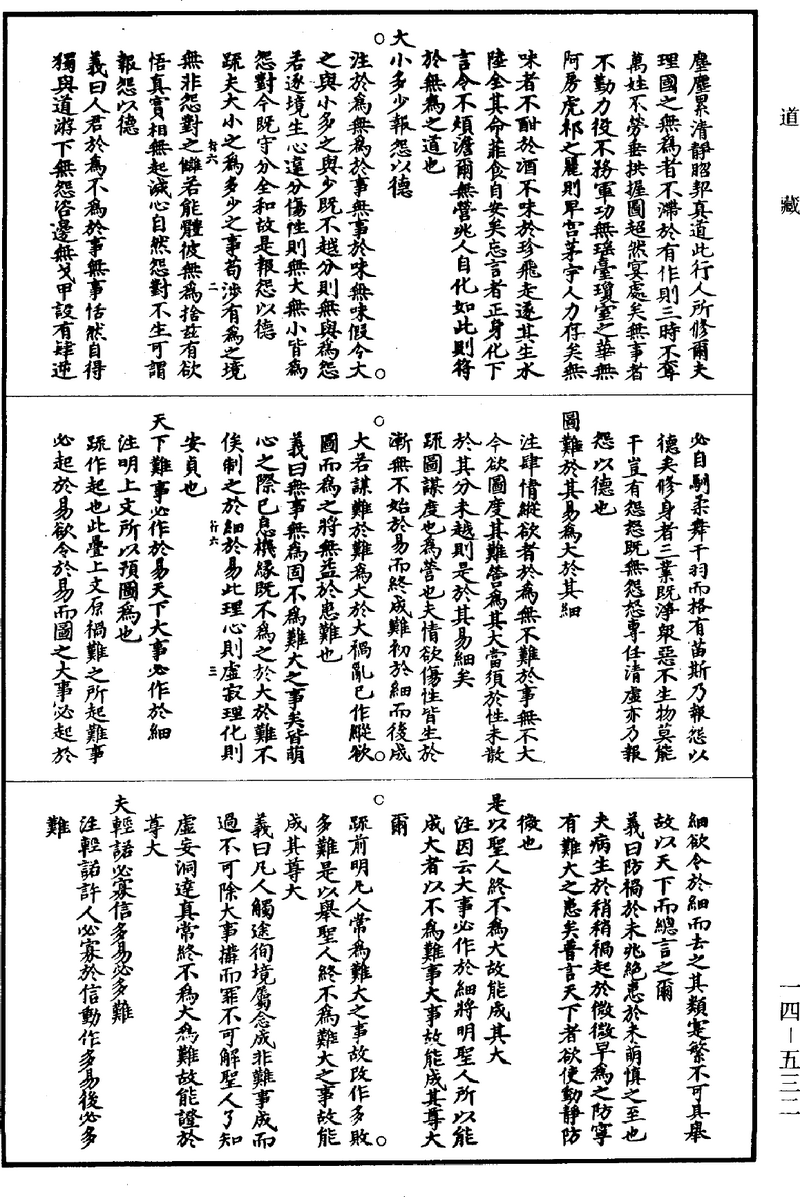 道藏
塵塵累清靜昭邦真道此行人所修爾夫
理國之無為者不滯於有作則三時不奪
萬姓不勞垂拱握圖超然宴處矣無事者
不勤力役不務軍功無瑤臺瓊室之華無
阿房虎祁之麗則卑宮茅宇人力存矣無
味者不酣於酒不味於珍飛走遂其生水
陸全其命菲食自安矣忘言者正身化下
言令不煩澹爾無營兆人自化如此則將
於無為之道也
大小多少報怨以德
注於為無為於事無事於味無味假令大
之與小多之與少既不越分則無與為怨
若逐境生心違分傷性則無大無小皆為
怨對今既守分全和故是報怨以德
疏夫大小之為多少之事苟涉有為之境
無非怨對之讎若能體彼無為捨茲有欲
悟真實相無起滅心自然怨對不生可謂
報怨以德
義曰人君於為不為於事無事恬然自得
獨與道游下無怨咨邊無戈甲設有肆逆
必自馴柔舞干羽而格有苗斯乃報怨以
德矣修身者三業既淨眾惡不生物莫能
干豈有怨怒既無怨怒專任清虛亦乃報
怨以德也
圖難於其易為大於其細
注肆情縱欲者於為無不難於事無不大
今欲圖度其難營為其大當須於性未散
於其分未越則是於其易細矣
疏圖謀度也為營也夫情欲傷性皆生於
漸無不始於易而終成難初於細而後成
大若謀難於難為大於大禍亂已作縱欲
圖而為之將無益於患難也
義曰無事無為固不為難大之事矣皆萌
心之際已息機緣既不為之於大於難不
俟制之於細於易此理心則虛寂理化則
安貞也
天下難事必作於易天下大事必作於細
注明上文所以預圖為也
疏作起也此疊上文原禍難之所起難事
必起於易欲令於易而圖之大事必起於
細欲令於細而去之其類寔繁不可具舉
故以天下而總言之爾
義曰防禍於未兆絕患於未萌慎之至也
夫病生於稍稍禍起於微微早為之防寧
有難大之患矣普言天下者欲使動靜防
微也
是以聖人終不為大故能成其大
注因云大事必作於細將明聖人所以能
成大者以不為難事大事故能成其尊大
爾
疏前明凡人常為難大之事故改作多敗
多難是以舉聖人終不為難大之事故能
成其尊大
義曰凡人觸途徇境屬念成非難事成而
過不可除大事搆而罪不可解聖人了知
虛妄洞達真常終不為大為難故能證於
尊大
夫輕諾必寡信多易必多難
注輕諾許人必寡於信動作多易後必多
難
一四－五三二